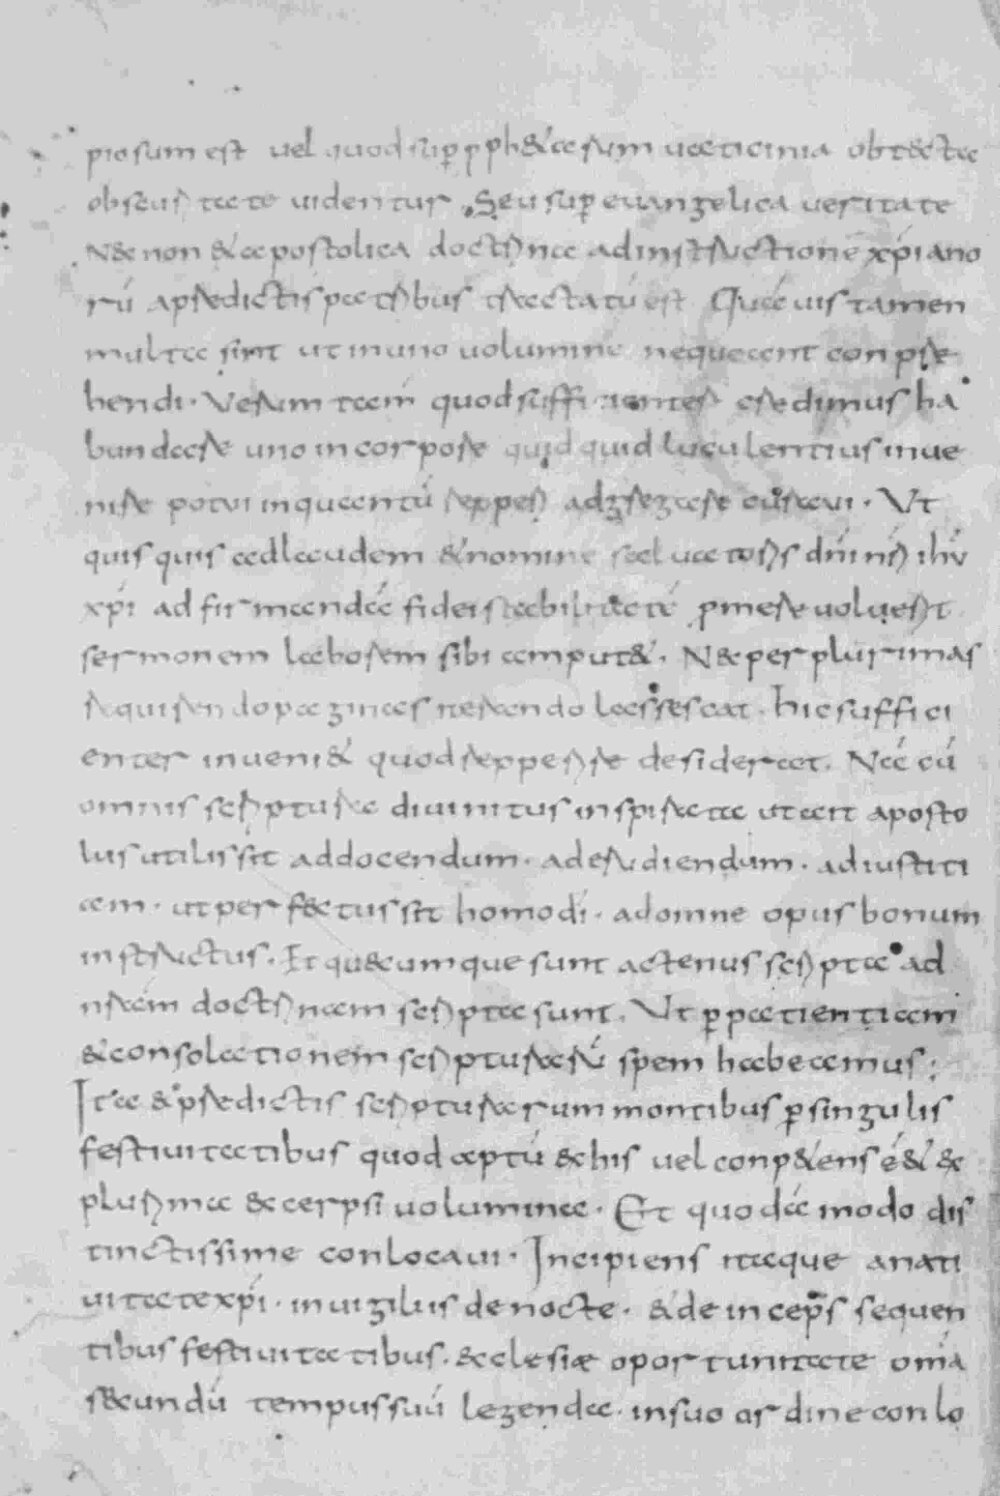 piosum est uel quod sup pph&a rum uaticinia obtecta
obscuritate uidentur. Seu sup euangelica ueritate
Nec non & apostolica doctrina ad instructionē xp̄iano
rū a predictis patribus tractatū est Quāuis tamen
multa sint ut in uno uolumine nequeant conpre
hendi. Verum tam̄ quod sufficienter credimus ha
bundare uno in corpore quidquid luculentius inue
nire potui in quantū repperi adgregare curaui. Ut
quis quis ad laudem & nomine saluatoris dn̄i nr̄i ihū
xp̄i ad firmandā fidei stabilitatē pmere uoluerit
sermonem laborem sibi amput&. Nec per plurimas
requirendo paginas iterando lassescat. hic suffici
enter inueni& quod repperire desideret. Nā cū
omnis scriptura diuinitus inspirata ut ait aposto
lus utilis sit ad docendum. ad erudiendum. ad iustiti
am. ut perfectus sit homo dī. ad omne opus bonum
instructus. Et quecumque sunt actenus scripta ad
nr̄am doctrinam scripta sunt. Ut p patientiam
& consolationem scripturarū spem habeamus;
Ita & predictis scripturarum montibus p singulis
festiuitatibus quod aptū & his uel conp&ens ē &
plurima excerpsi uolumina. Et quodā modo dis
tinctissime conlocaui. Incipiens itaque a nati
uitate xp̄i. in uigiliis de nocte. & deinceps sequen
tibus festiuitatibus. ecclesiæ oportunitate omīa
secundū tempus suū legenda. in suo ordine conlo